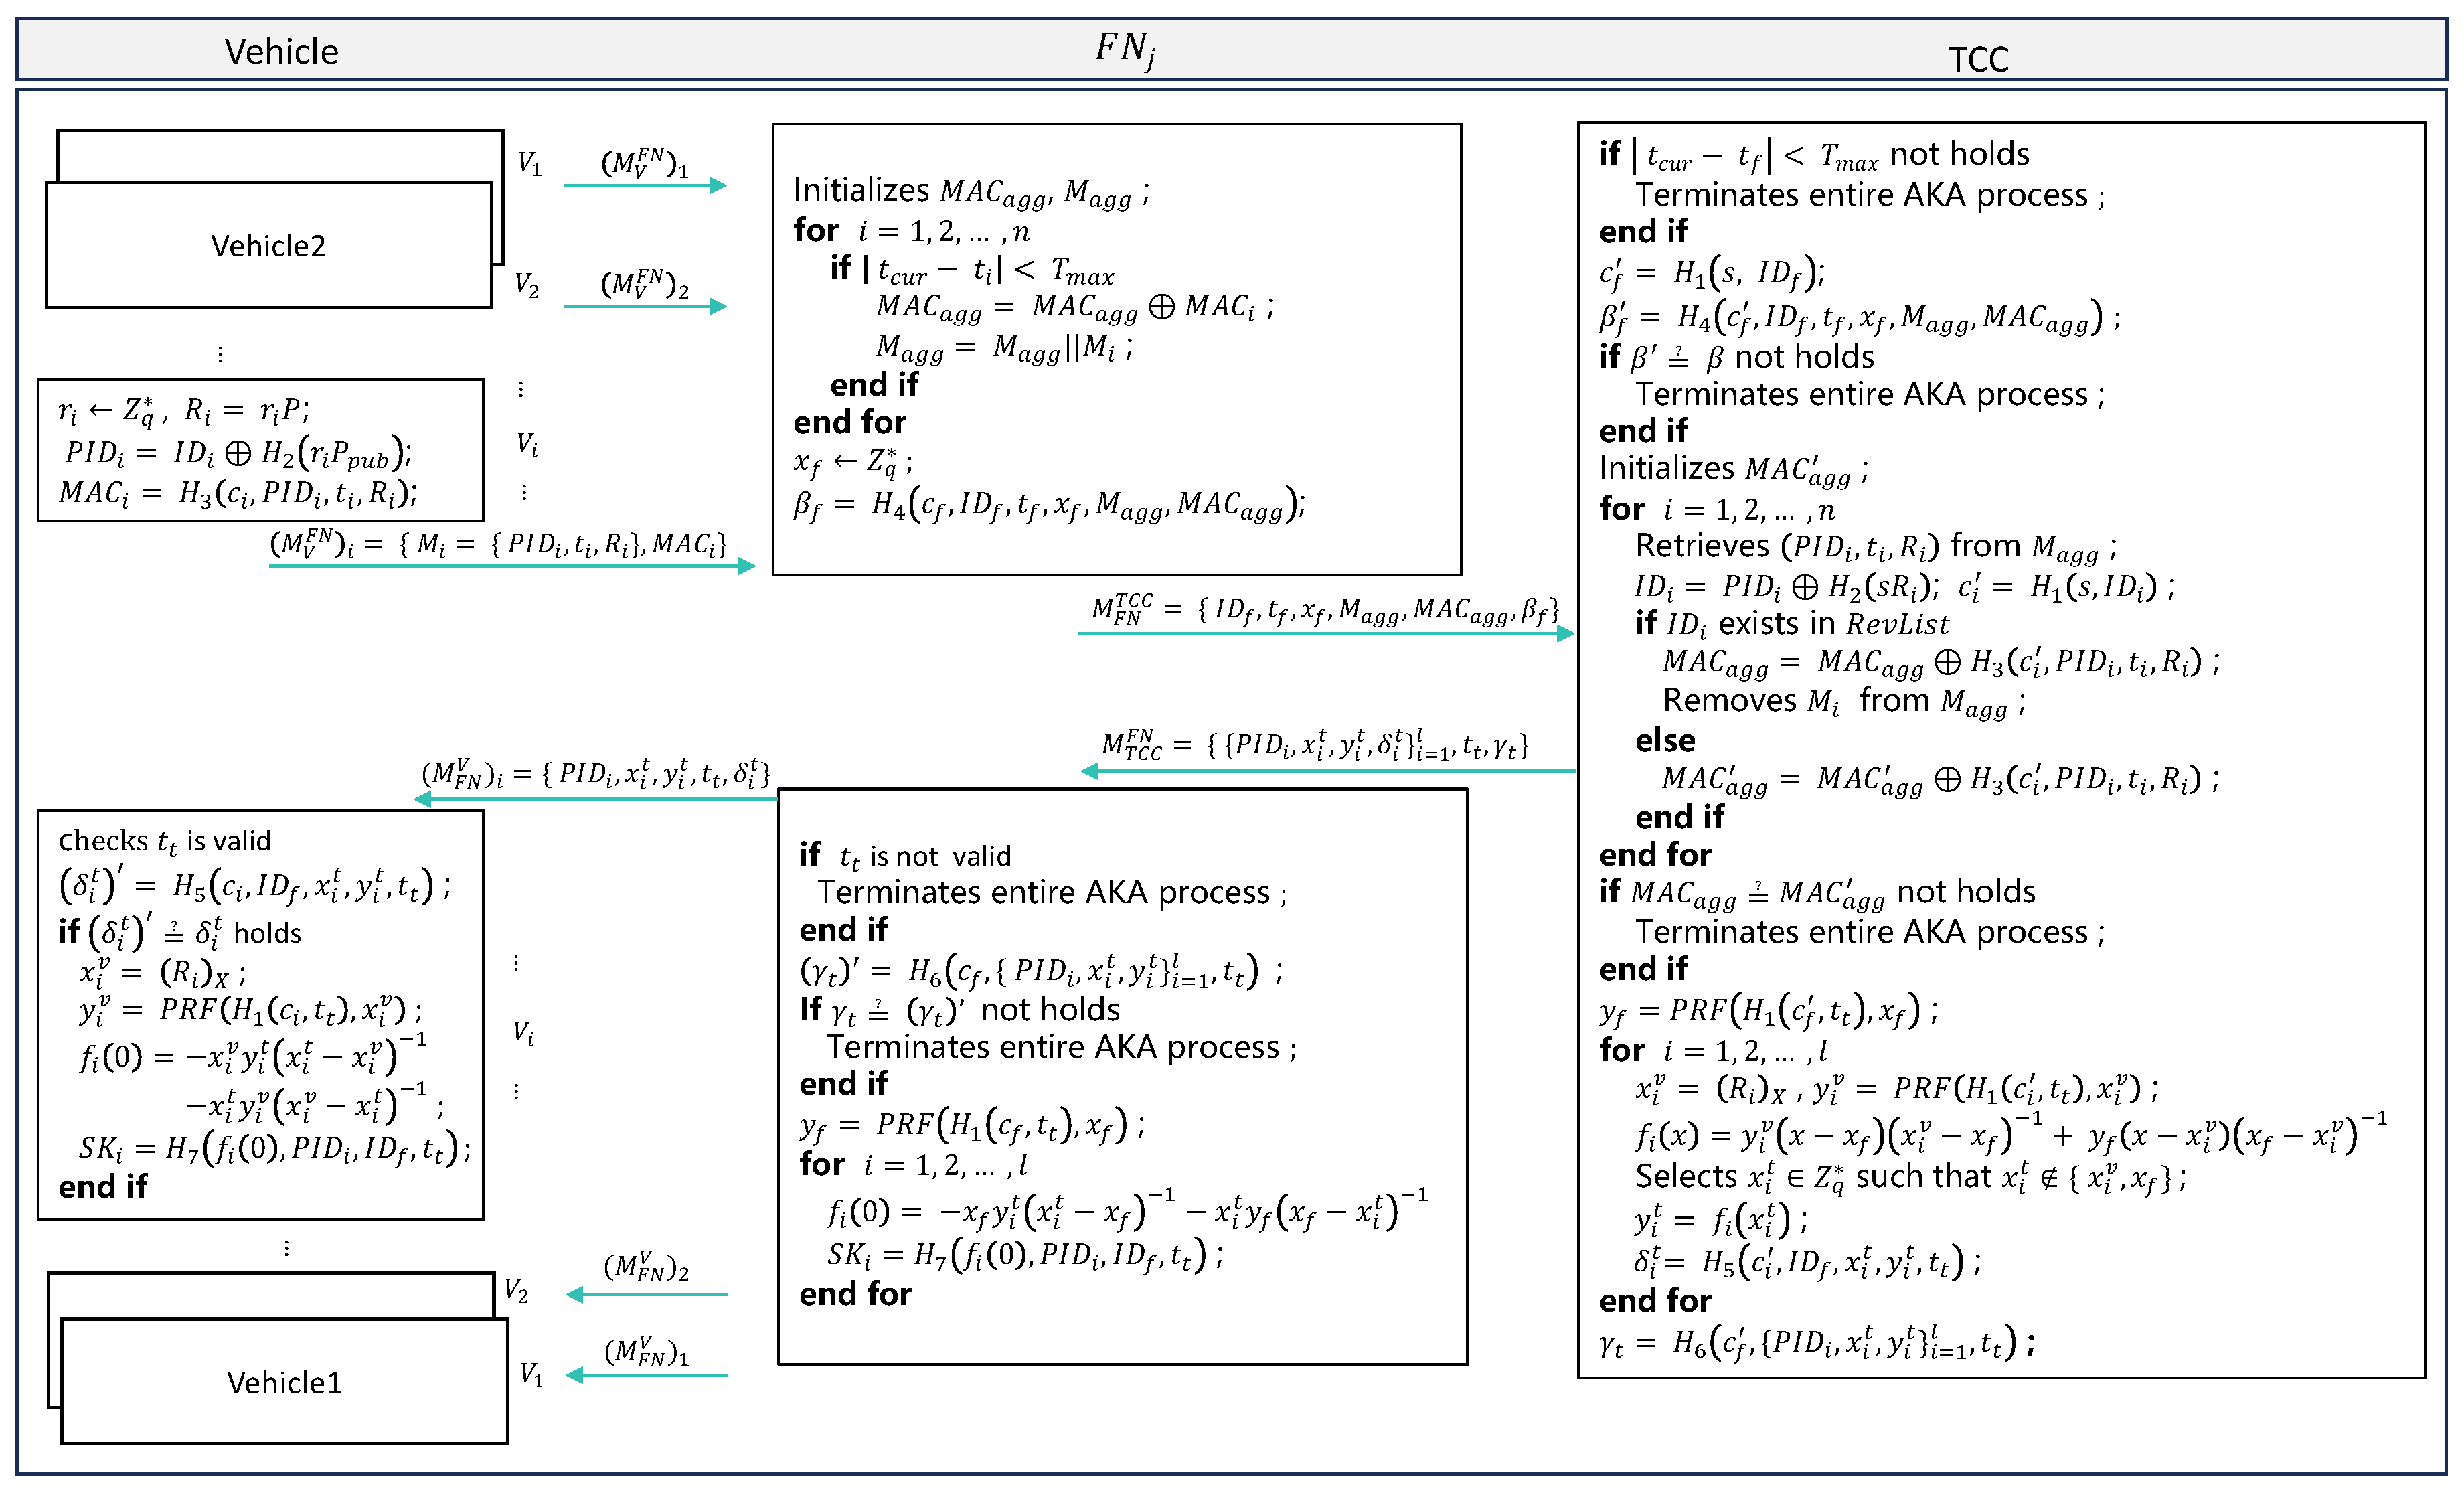 Vehicle
FN_j
TCC
V_1
(M_V^{FN})_1
Vehicle2
V_2
(M_V^{FN})_2
⋮
⋮
r_i ← Z_q^*, R_i = r_iP;
PID_i = ID_i ⊕ H_2(r_iP_{pub});
MAC_i = H_3(c_i, PID_i, t_i, R_i);
V_i
⋮
(M_V^{FN})_i = { M_i = { PID_i, t_i, R_i}, MAC_i}
Initializes MAC_{agg}, M_{agg} ;
for i = 1, 2, … , n
if | t_{cur} − t_i| < T_{max}
MAC_{agg} = MAC_{agg} ⊕ MAC_i ;
M_{agg} = M_{agg}||M_i ;
end if
end for
x_f ← Z_q^* ;
β_f = H_4(c_f, ID_f, t_f, x_f, M_{agg}, MAC_{agg});
M_{FN}^{TCC} = { ID_f, t_f, x_f, M_{agg}, MAC_{agg}, β_f}
if | t_{cur} − t_f| < T_{max} not holds
Terminates entire AKA process ;
end if
c_f′ = H_1(s, ID_f);
β_f′ = H_4(c_f′, ID_f, t_f, x_f, M_{agg}, MAC_{agg}) ;
if β′ ≟ β not holds
Terminates entire AKA process ;
end if
Initializes MAC_{agg}′ ;
for i = 1, 2, … , n
Retrieves (PID_i, t_i, R_i) from M_{agg} ;
ID_i = PID_i ⊕ H_2(sR_i); c_i′ = H_1(s, ID_i) ;
if ID_i exists in RevList
MAC_{agg} = MAC_{agg} ⊕ H_3(c_i′, PID_i, t_i, R_i) ;
Removes M_i from M_{agg} ;
else
MAC_{agg}′ = MAC_{agg}′ ⊕ H_3(c_i′, PID_i, t_i, R_i) ;
end if
end for
if MAC_{agg} ≟ MAC_{agg}′ not holds
Terminates entire AKA process ;
end if
y_f = PRF(H_1(c_f′, t_t), x_f) ;
for i = 1, 2, … , l
x_i^v = (R_i)_X , y_i^v = PRF(H_1(c_i′, t_t), x_i^v) ;
f_i(x) = y_i^v(x − x_f)(x_i^v − x_f)^{−1} + y_f(x − x_i^v)(x_f − x_i^v)^{−1}
Selects x_i^t ∈ Z_q^* such that x_i^t ∉ { x_i^v, x_f} ;
y_i^t = f_i(x_i^t) ;
δ_i^t = H_5(c_i′, ID_f, x_i^t, y_i^t, t_t) ;
end for
γ_t = H_6(c_f′, {PID_i, x_i^t, y_i^t}_{i=1}^l, t_t) ;
M_{TCC}^{FN} = { {PID_i, x_i^t, y_i^t, δ_i^t}_{i=1}^l, t_t, γ_t}
(M_{FN}^V)_i = { PID_i, x_i^t, y_i^t, t_t, δ_i^t}
if t_t is not valid
Terminates entire AKA process ;
end if
(γ_t)′ = H_6(c_f, { PID_i, x_i^t, y_i^t}_{i=1}^l, t_t) ;
If γ_t ≟ (γ_t)′ not holds
Terminates entire AKA process ;
end if
y_f = PRF(H_1(c_f, t_t), x_f) ;
for i = 1, 2, … , l
f_i(0) = −x_f y_i^t(x_i^t − x_f)^{−1} − x_i^t y_f(x_f − x_i^t)^{−1}
SK_i = H_7(f_i(0), PID_i, ID_f, t_t) ;
end for
Checks t_t is valid
(δ_i^t)′ = H_5(c_i, ID_f, x_i^t, y_i^t, t_t) ;
if (δ_i^t)′ ≟ δ_i^t holds
x_i^v = (R_i)_X ;
y_i^v = PRF(H_1(c_i, t_t), x_i^v) ;
f_i(0) = −x_i^v y_i^t(x_i^t − x_i^v)^{−1}
−x_i^t y_i^v(x_i^v − x_i^t)^{−1} ;
SK_i = H_7(f_i(0), PID_i, ID_f, t_t);
end if
⋮
V_i
⋮
⋮
V_2
(M_{FN}^V)_2
Vehicle1
V_1
(M_{FN}^V)_1